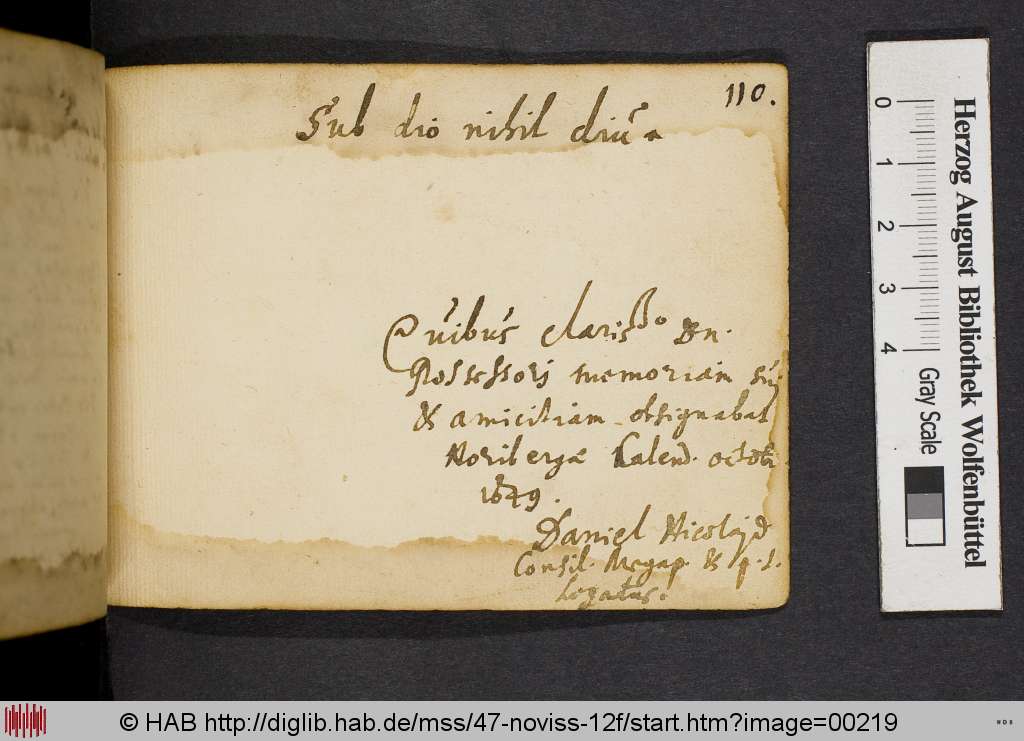 110.
Sub dio nihil diu.
Quibus clariss.mo Dn.
Possessori memoriam sui
& amicitiam obsignabat
Noribergæ Calend. octobr.
1649.
Daniel Nicolai
Consil. Megap. & p. t.
Legatus.
0 1 2 3 4
Gray Scale
Herzog August Bibliothek Wolfenbüttel
© HAB http://diglib.hab.de/mss/47-noviss-12f/start.htm?image=00219